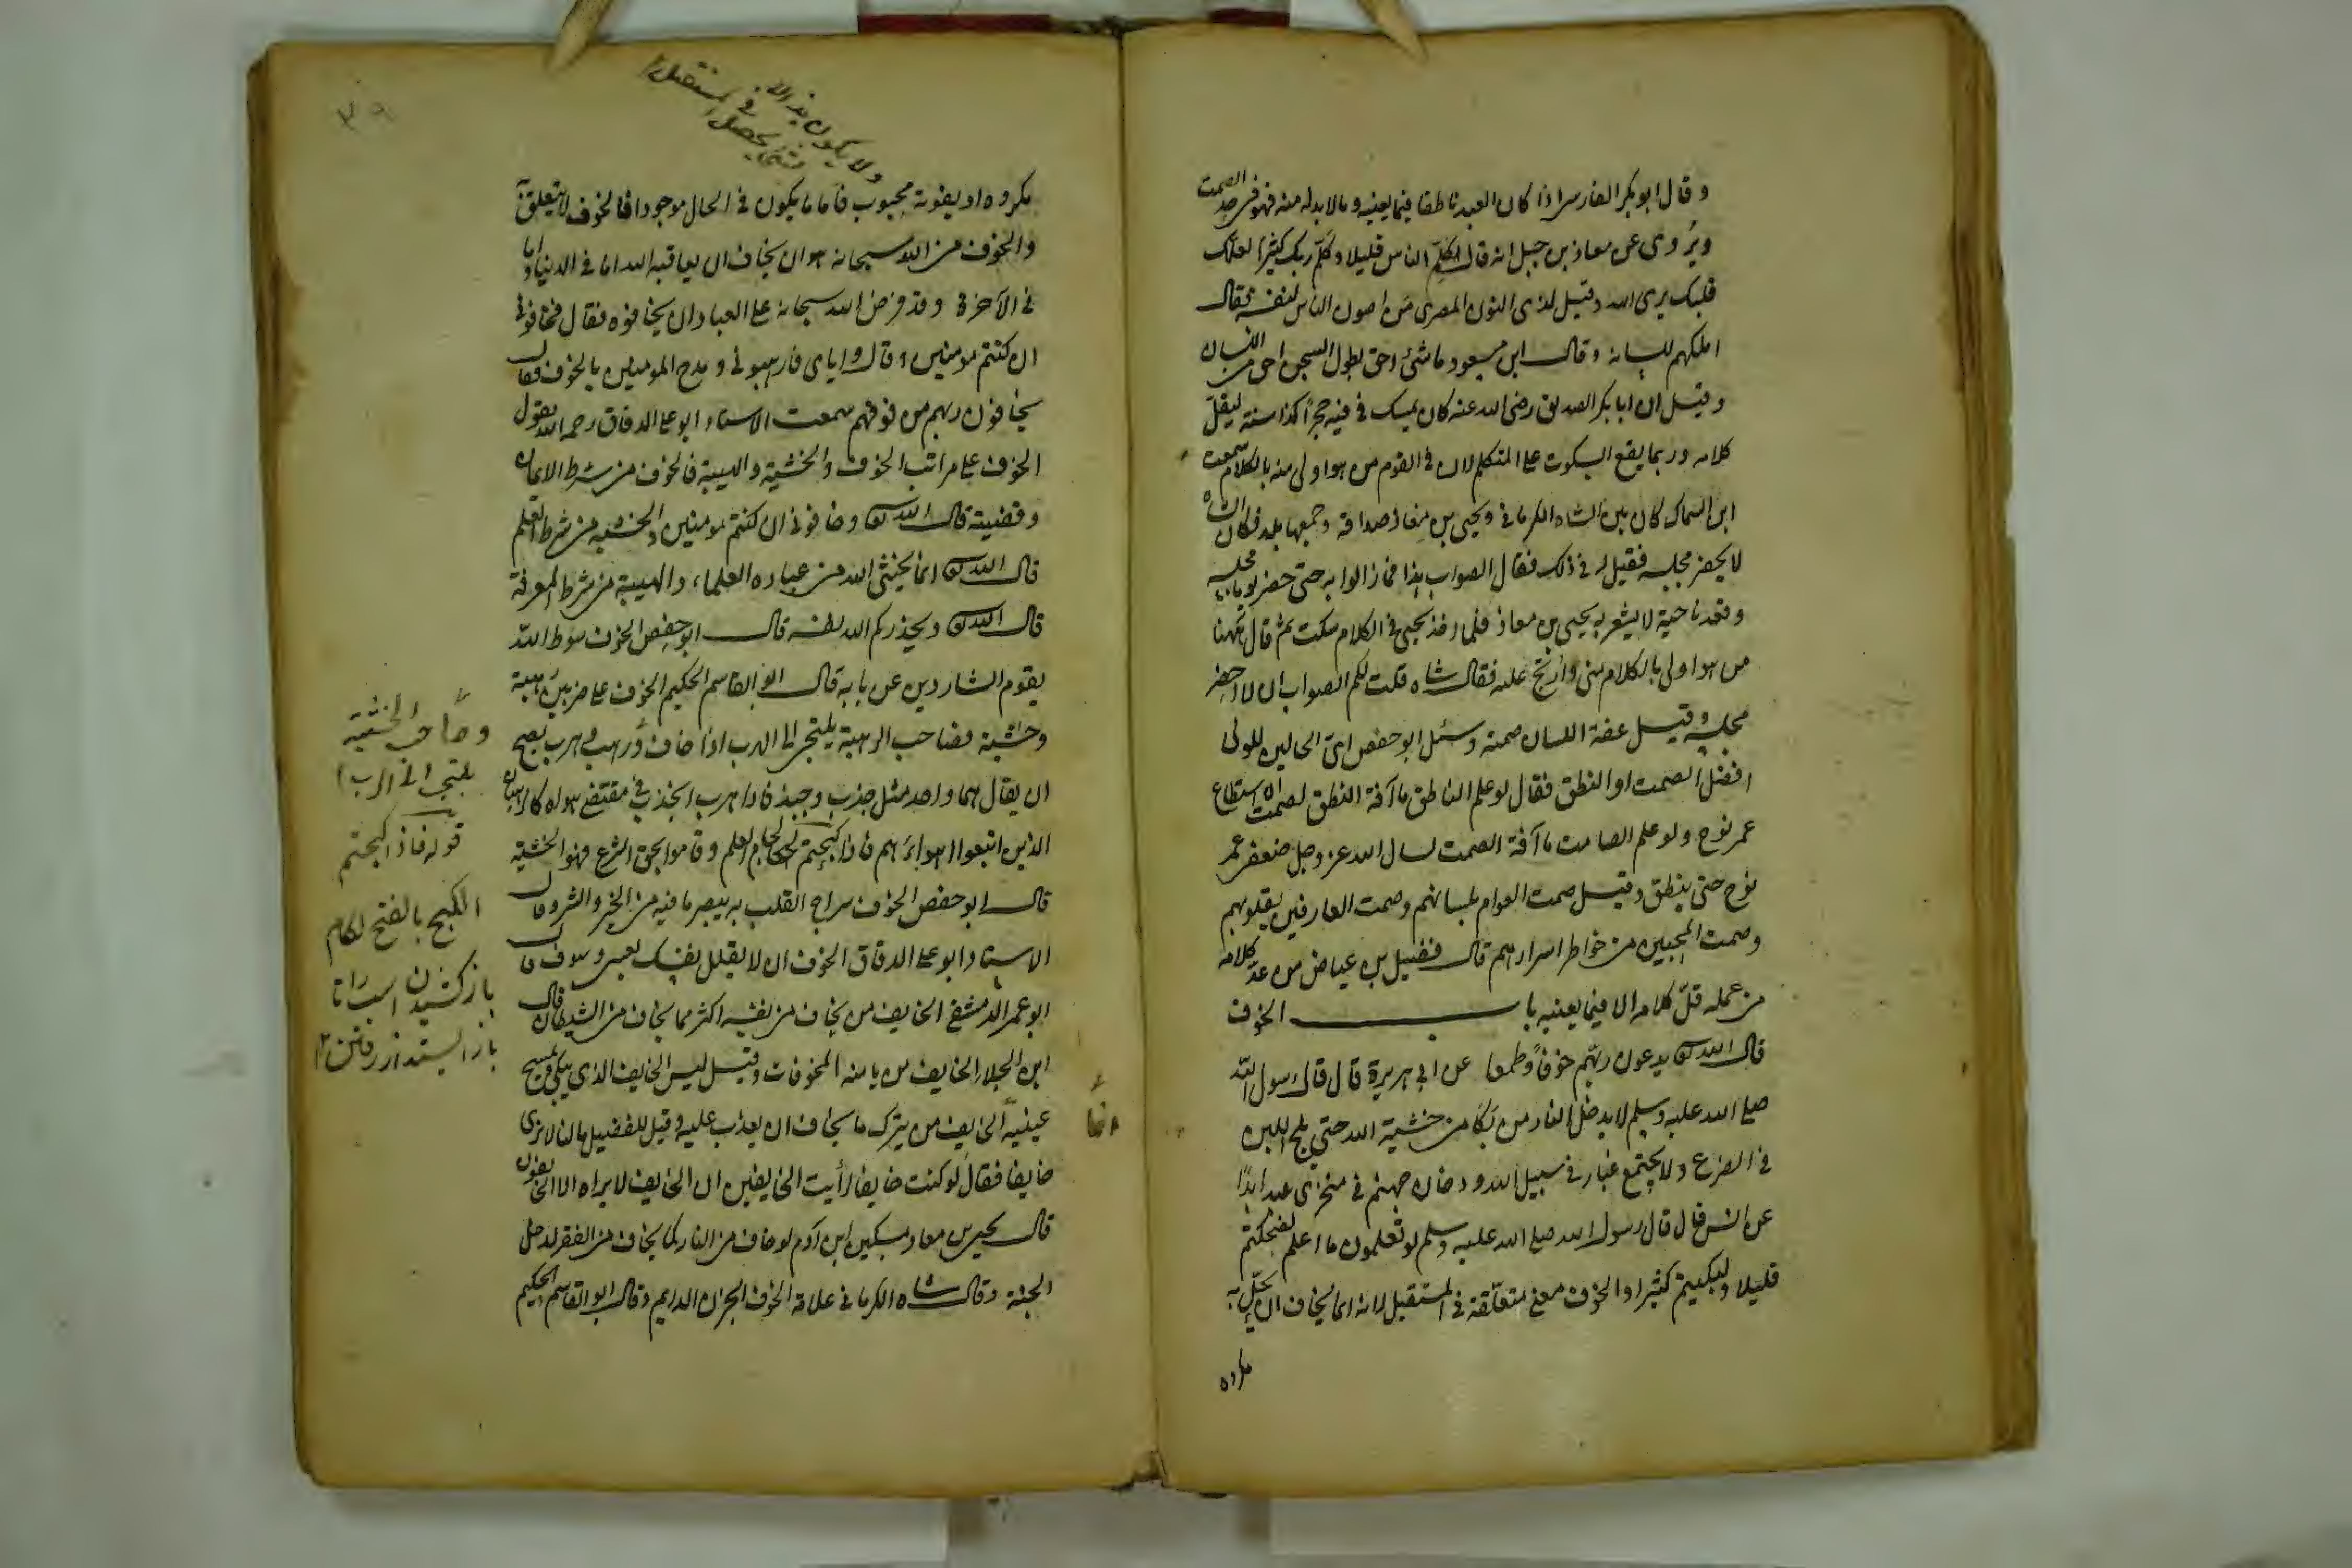 وقال ابو بكر الفارسى اذا كان العبد ناطقا فيما يعنيه وما لا بد له منه فهو فى حد الصمت
ويُروى عن معاذ بن جبل انه قال كلّم الناس قليلا وكلّم ربك كثيرا لعلك
قلبك يرى الله وقيل لذى النون المصرى من اصون الناس لنفسه فقال
املكهم للسانه وقال ابن مسعود ما شئ احق بطول السجن احق من اللسان
وقيل ان ابا بكر الصديق رضى الله عنه كان يمسك فى فيه حجراً كذا سنة ليقلّ
كلامه وربما يقع السكوت على المتكلم لان فى القوم من هو اولى منه بالكلام سمعت
ابن السماك كان بين الشاه الكرمانى ويحيى بن معاذ صداقة وجمعهما بلد فكان الشاه
لا يحضر مجلسه فقيل له فى ذلك فقال الصواب هذا فما زالوا به حتى حضر يوما مجلسه
وقعد ناحية لا يشعر به يحيى بن معاذ فلما اخذ يحيى فى الكلام سكت ثم قال ههنا
من هو اولى بالكلام منى وارتج عليه فقال شاه قلت لكم الصواب ان لا احضر
مجلسه وقيل عفة اللسان صمته وسئل ابو حفص اىّ الحالين للولى
افضل الصمت او النطق فقال لو علم الناطق ما آفة النطق لصمت ان استطاع
عمر نوح ولو علم الصامت ما آفة الصمت لسال الله عز وجل ضعفى عمر
نوح حتى ينطق وقيل صمت العوام بلسانهم وصمت العارفين بقلوبهم
وصمت المحبين من خواطر اسرارهم قال فضيل بن عياض من عدّ كلامه
من عمله قلّ كلامه الا فيما يعنيه باب الخوف
قال الله تعالى يدعون ربّهم خوفاً وطمعا عن ابى هريرة قال قال رسول الله
صلى الله عليه وسلم لا يدخل النار من بكا من خشية الله حتى يلج اللبن
فى الضرع ولا يجتمع غبار فى سبيل الله ودخان جهنم فى منخرى عبد ابدًا
عن انس قال قال رسول الله صلى الله عليه وسلم لو تعلمون ما اعلم لضحكتم
قليلا ولبكيتم كثيرا والخوف معنى متعلّقة فى المستقبل لانه انما يخاف ان يحلّ به
مكروه
ولا يكون هذا الا
فى المستقبل
مكروه او يفوته محبوب فاما ما يكون فى الحال موجودا فالخوف لا يتعلق به
والخوف من الله سبحانه هو ان يخاف ان يعاقبه الله اما فى الدنيا واما
فى الآخرة وقد فرض الله سبحانه على العباد ان يخافوه فقال فخافونى
ان كنتم مومنين وقال واياى فارهبونى ومدح المومنين بالخوف فقال
يخافون ربهم من فوقهم سمعت الاستاد ابو على الدقاق رحمه الله يقول
الخوف على مراتب الخوف والخشية والهيبة فالخوف من شرط الايمان
وقضيته قال الله تعالى وخافونى ان كنتم مومنين والخشية من شرط العلم
قال الله تعالى انما يخشى الله من عباده العلماء والهيبة من شرط المعرفة
قال الله تعالى ويحذركم الله نفسه قال ابو حفص الخوف سوط الله
يقوم الشاردين عن بابه قال ابو القاسم الحكيم الخوف على ضربين رهبة
وخشية فصاحب الرهبة يلتجئ الى الهرب اذا خاف ورهب وهرب يصح
ان يقال هما واحد مثل جذب وجبذ فاذا هرب انجذب فى مقتضى هواه كالرهبان
الذين اتبعوا اهواءهم فاذا كبحتم لجام العلم وقاموا بحق الشرع فهو الخشية
قال ابو حفص الخوف سراج القلب به يبصر ما فيه من الخير والشر وقال
الاستاد ابو على الدقاق الخوف ان لا يعلل نفسك بعسى وسوف قال
ابو عمر الدمشقى الخايف من يخاف من نفسه اكثر مما يخاف من الشيطان قال
ابن الجلاء الخايف من يامنه المخوفات وقيل ليس الخايف الذى يبكى ويمسح
عينيه الخايف من يترك ما يخاف ان يعذب عليه وقيل للفضيل ما لنا لا نرى
خايفا فقال لو كنت خايفا رأيت الخايفين ان الخايف لا يراه الا الخايفون
قال يحيى بن معاذ مسكين ابن آدم لو خاف من النار كما يخاف من الفقر لدخل
الجنة وقال شاه الكرمانى علامة الخوف الحزن الدايم وقال ابو القاسم الحكيم
وصاحب الخشية
يلتجئ الى الرب
قوله فاذا كبحتم
الكبح بالفتح لكام
باز كشيدن اسب را تا
باز ايستد از رفتن